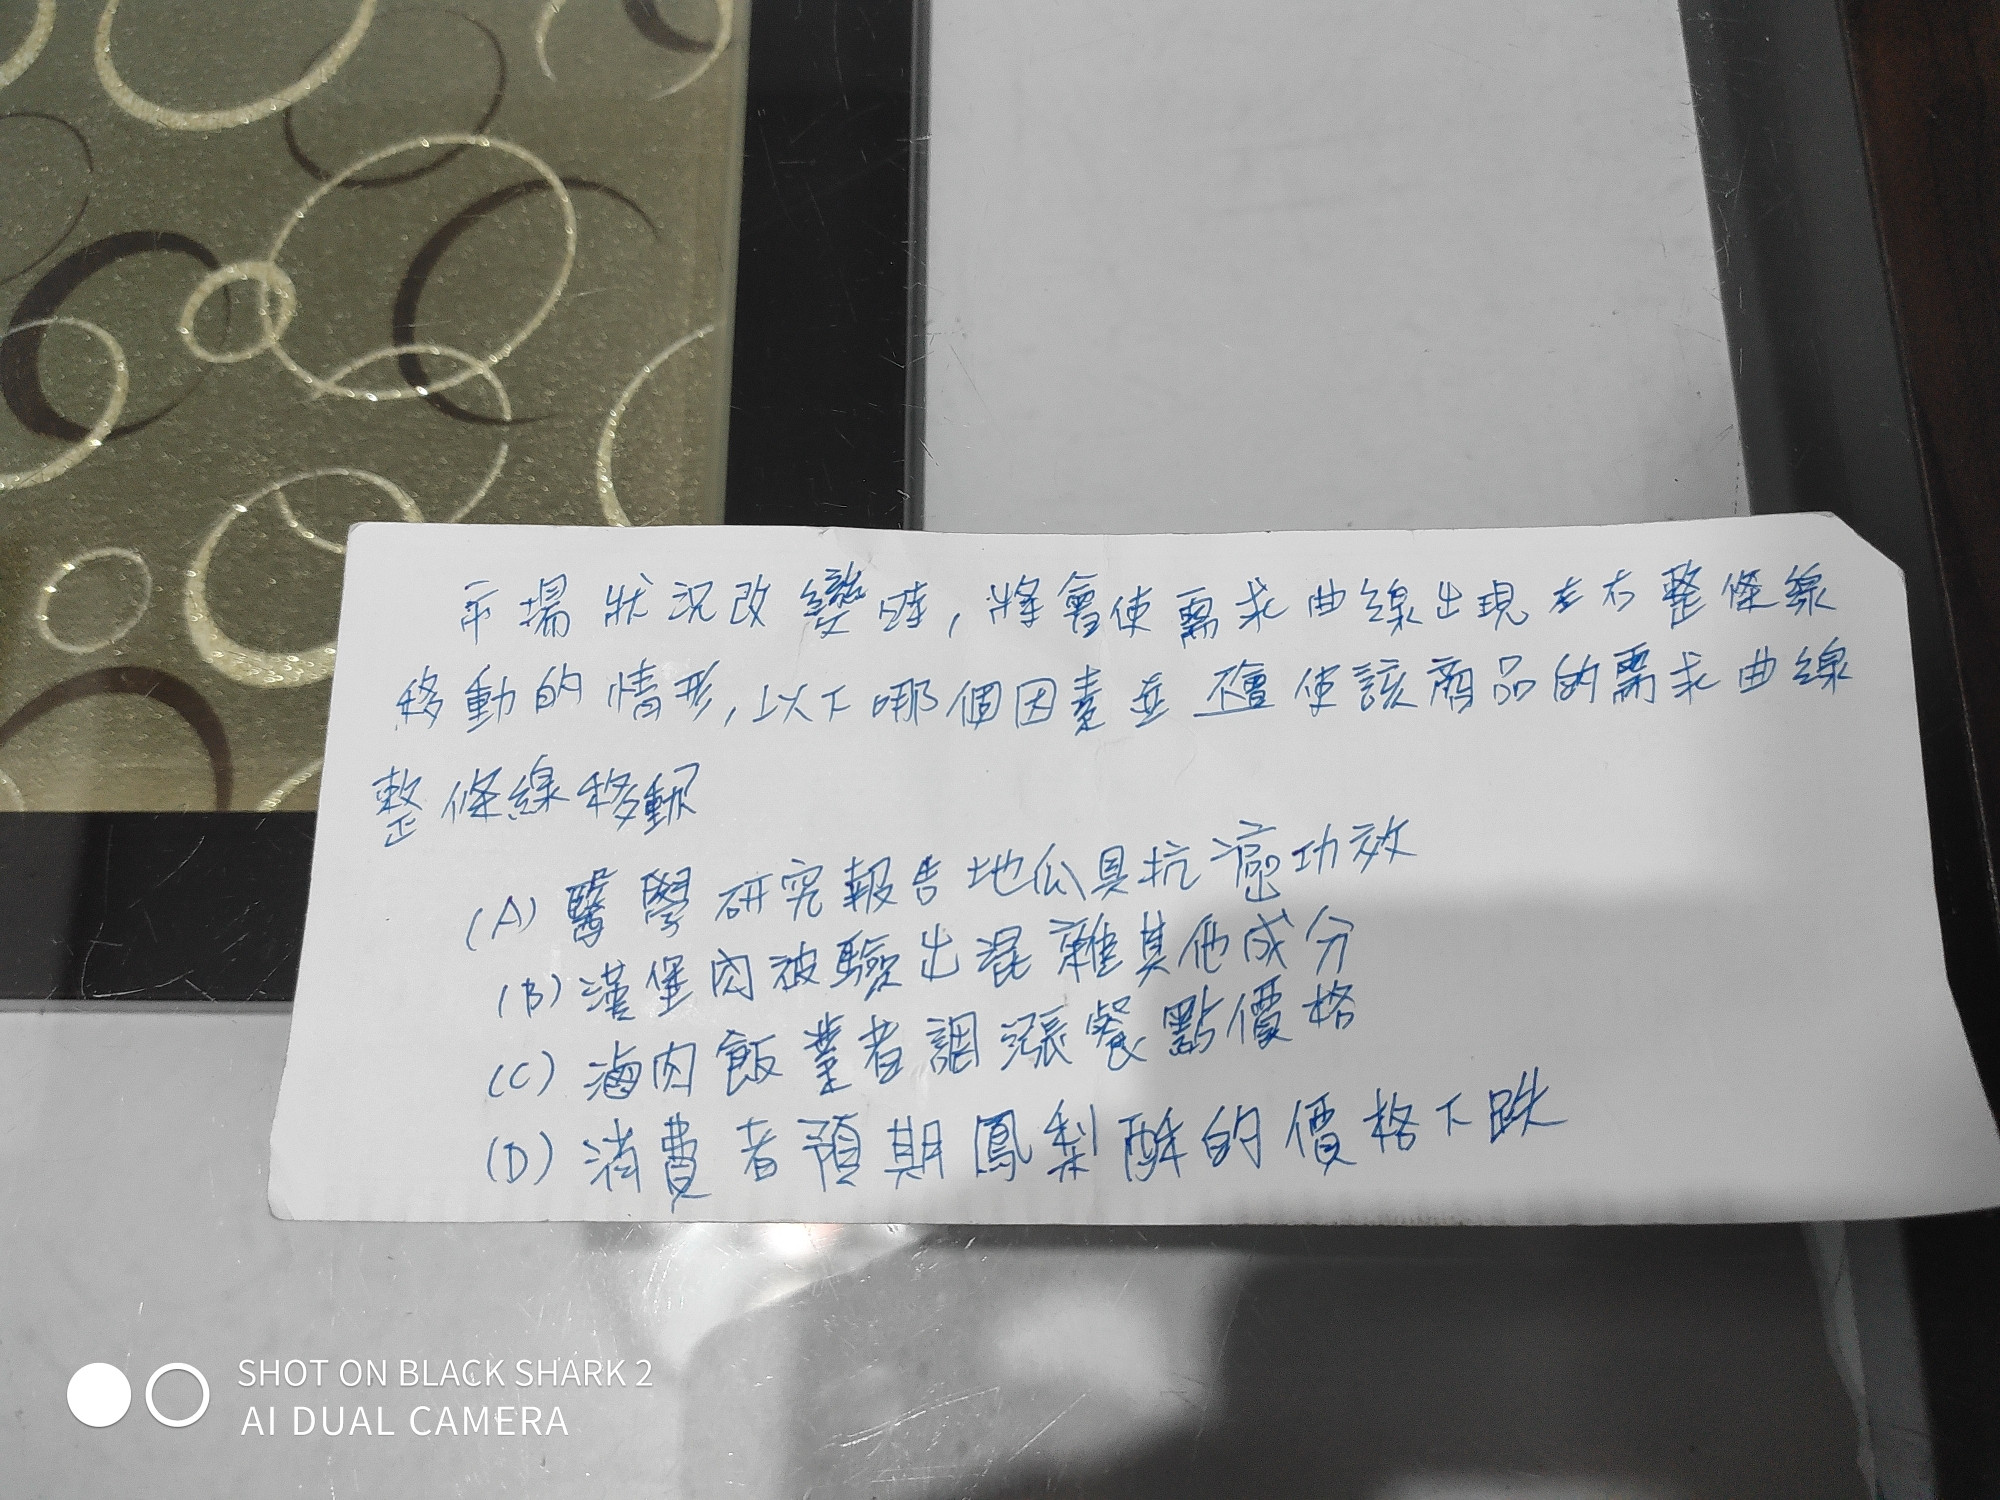 市場狀況改變時,將會使需求曲線出現左右整條線
移動的情形,以下哪個因素並不會使該商品的需求曲線
整條線移動
(A)醫學研究報告地瓜具抗癌功效
(B)漢堡肉被驗出混雜其他成分
(C)滷肉飯業者調漲餐點價格
(D)消費者預期鳳梨酥的價格下跌
SHOT ON BLACK SHARK 2
AI DUAL CAMERA